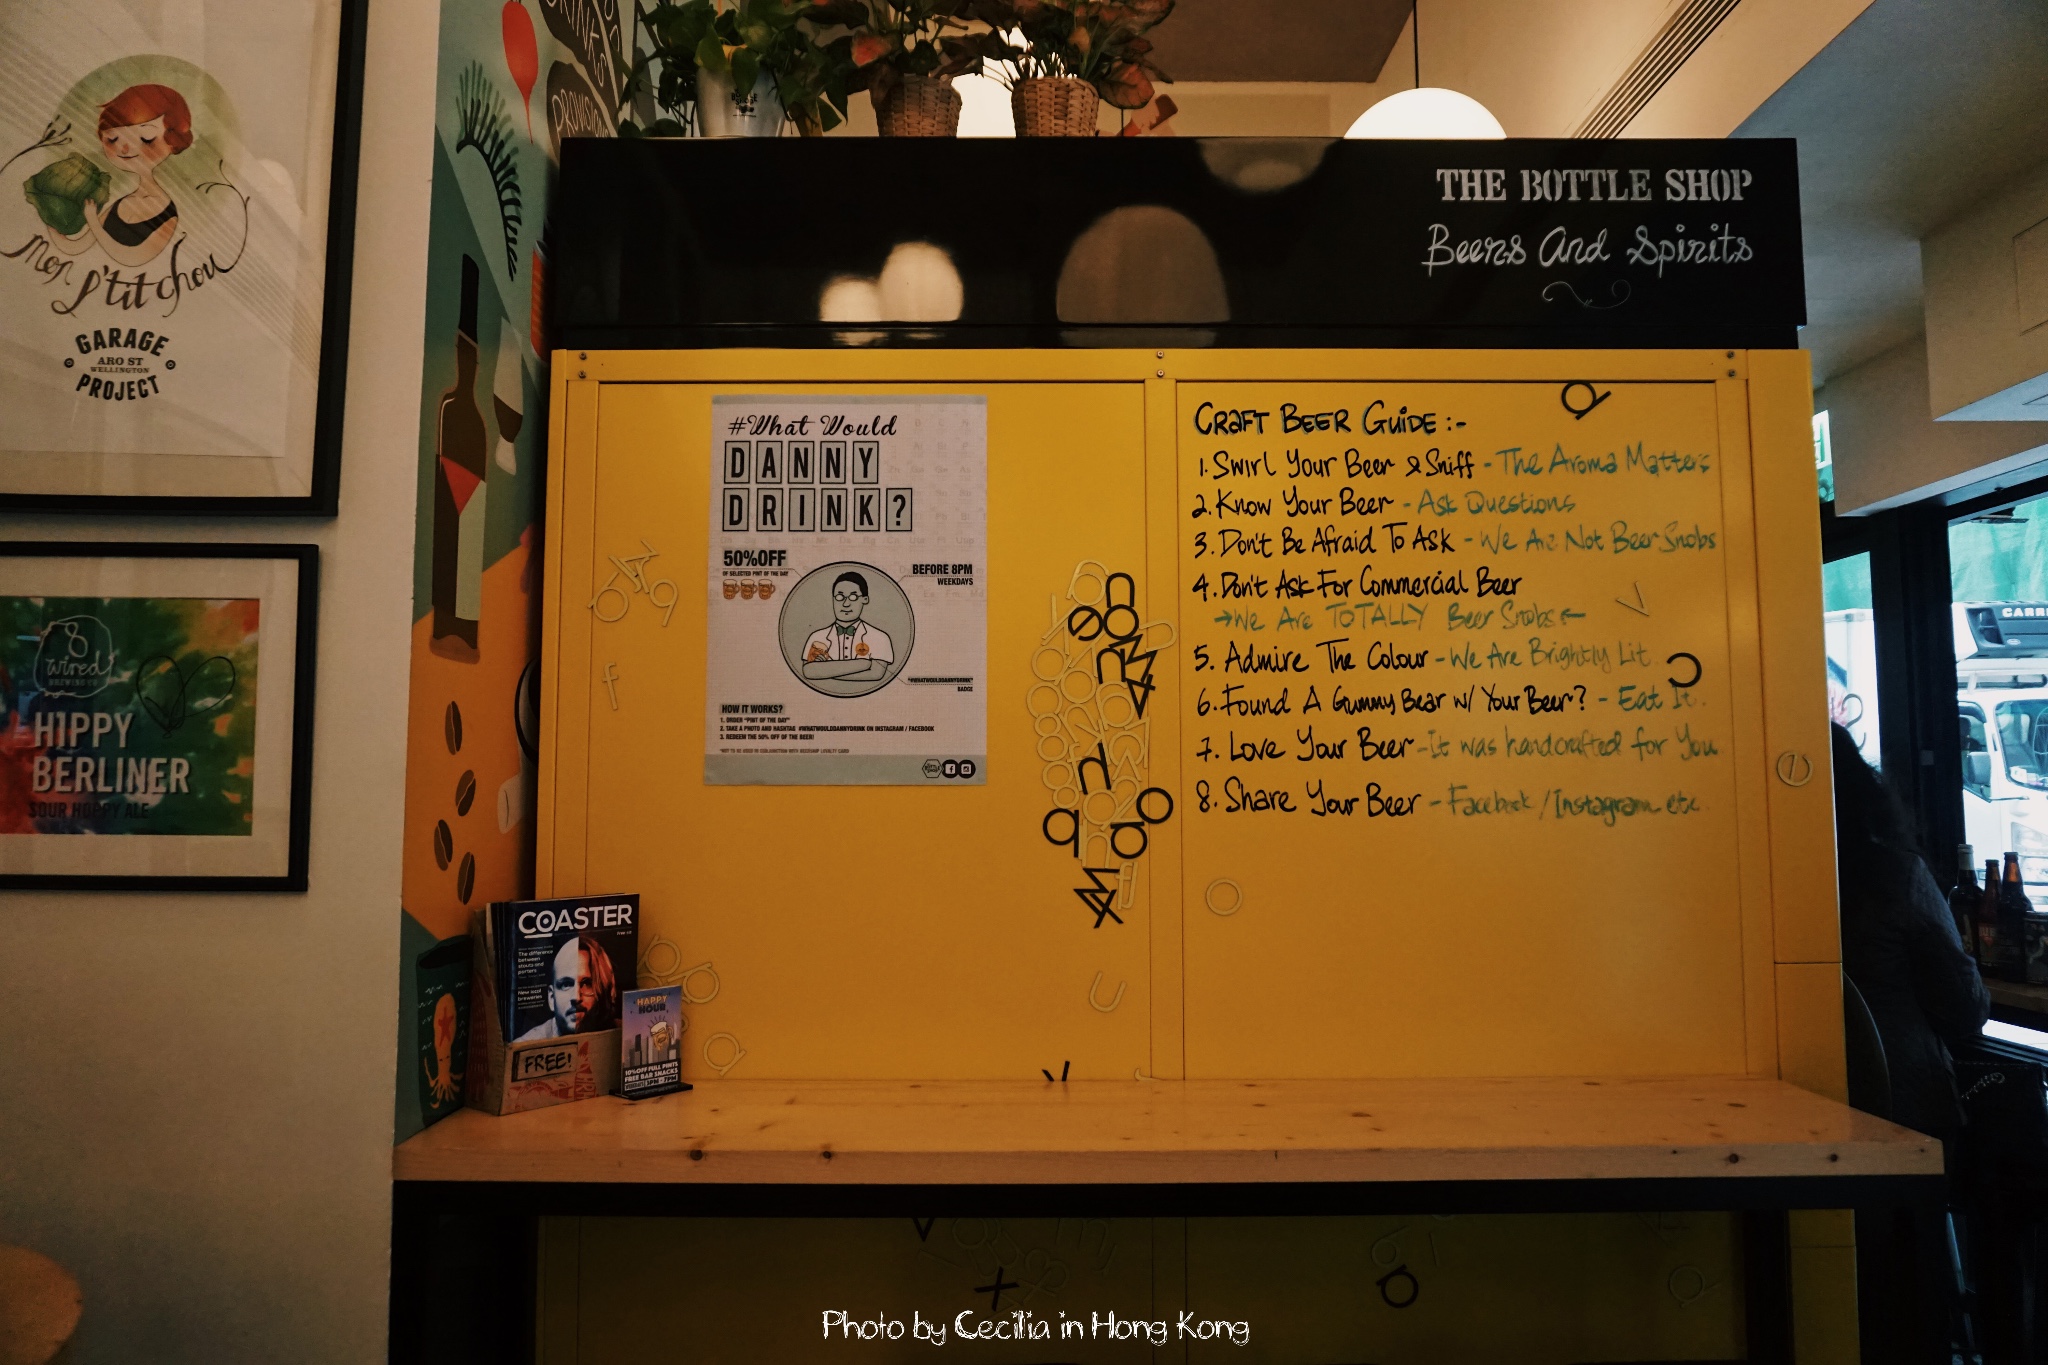 Mon P'tit chou
GARAGE
ARO ST
WELLINGTON
PROJECT
8
wired
BREWING CO
HIPPY
BERLINER
SOUR HOPPY ALE
DRINKS
PROVISIONS
THE BOTTLE SHOP
Beers And Spirits
#What Would
DANNY
DRINK?
50%OFF
OF SELECTED PINT OF THE DAY
BEFORE 8PM
WEEKDAYS
"#WHATWOULDDANNYDRINK"
BADGE
HOW IT WORKS?
1. ORDER "PINT OF THE DAY"
2. TAKE A PHOTO AND HASHTAG #WHATWOULDDANNYDRINK ON INSTAGRAM / FACEBOOK
3. REDEEM THE 50% OFF OF THE BEER!
CRAFT BEER GUIDE :-
1. Swirl Your Beer & Sniff - The Aroma Matters
2. Know Your Beer - Ask Questions
3. Don't Be Afraid To Ask - We Are Not Beer Snobs
4. Don't Ask For Commercial Beer
→We Are TOTALLY Beer Snobs←
5. Admire The Colour - We Are Brightly Lit
6. Found A Gummy Bear w/ Your Beer? - Eat It.
7. Love Your Beer - It was handcrafted for You
8. Share Your Beer - Facebook / Instagram etc.
COASTER
The difference
between
stouts and
porters
New local
breweries
FREE!
HAPPY
HOUR
10%OFF FULL PINTS
FREE BAR SNACKS
3PM - 7PM
CARRI
Photo by Cecilia in Hong Kong